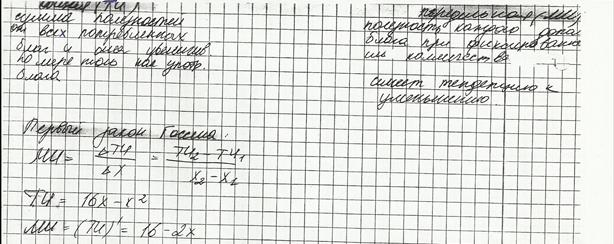 общая (TU)
сумма полезностей
от всех потребленных
благ и она увелич
по мере того как употр.
блага
предельная (MU)
полезность каждого
блага при фиксирован
их количества
имеет тенденцию к
уменьшению
Первый закон Госсена:
MU = ΔTU / ΔX = TU2 - TU1 / X2 - X1
TU = 16x - x²
MU = (TU)' = 16 - 2x